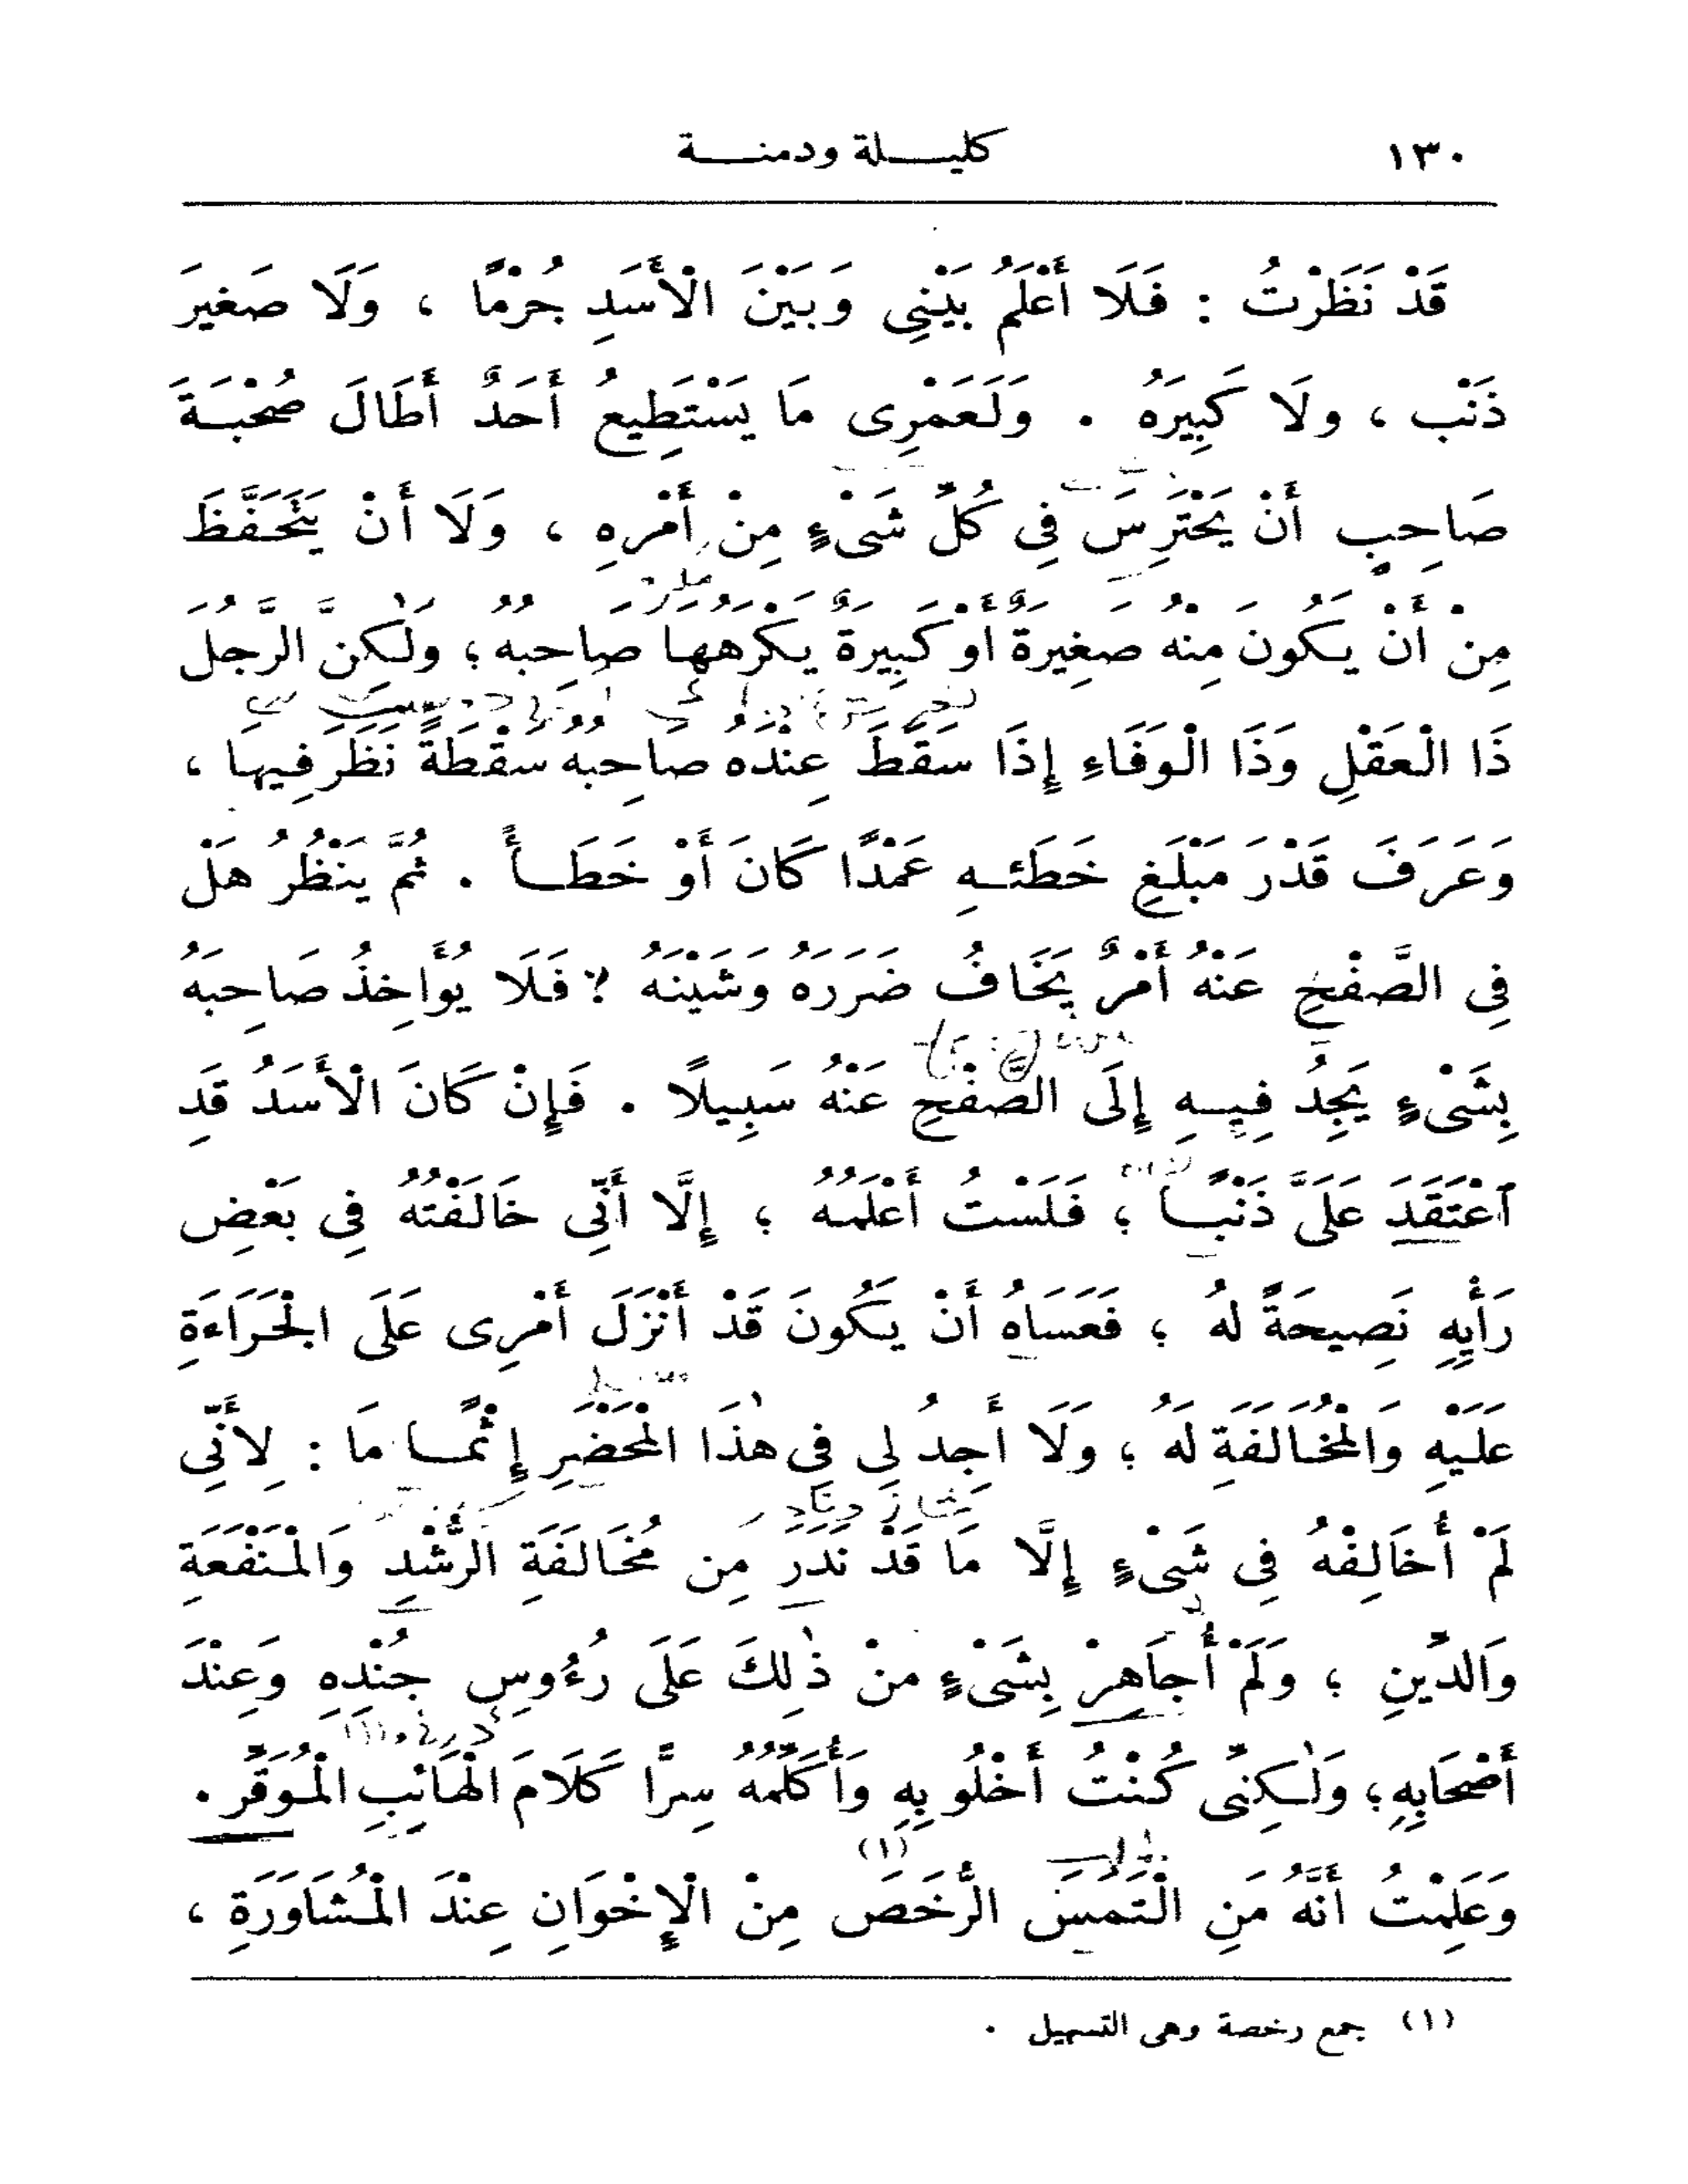 ١٣٠ كليلة ودمنة
قَدْ نَظَرْتُ : فَلَا أَعْلَمُ بَيْنِى وَبَيْنَ الْأَسَدِ جُرْمًا ، وَلَا صَغِيرَ
ذَنْب ، ولَا كَبِيرَهُ . وَلَعَمْرِى مَا يَسْتَطِيعُ أَحَدٌ أَطَالَ صُحْبَةَ
صَاحِبٍ أَنْ يَحْتَرِسَ فِى كُلِّ شَىْءٍ مِنْ أَمْرِهِ ، وَلَا أَنْ يَتَحَفَّظَ
مِنْ أَنْ يَكُونَ مِنْهُ صَغِيرَةٌ أَوْ كَبِيرَةٌ يَكْرَهُهَا صَاحِبُهُ ؛ وَلٰكِنَّ الرَّجُلَ
ذَا الْعَقْلِ وَذَا الْوَفَاءِ إِذَا سَقَطَ عِنْدَهُ صَاحِبُهُ سَقْطَةً نَظَرَ فِيهَا ،
وَعَرَفَ قَدْرَ مَبْلَغِ خَطَئِهِ عَمْدًا كَانَ أَوْ خَطَأً . ثُمَّ يَنْظُرُ هَلْ
فِى الصَّفْحِ عَنْهُ أَمْرٌ يَخَافُ ضَرَرَهُ وَشَيْنَهُ ؟ فَلَا يُؤَاخِذُ صَاحِبَهُ
بِشَىْءٍ يَجِدُ فِيهِ إِلَى الصَّفْحِ عَنْهُ سَبِيلًا . فَإِنْ كَانَ الْأَسَدُ قَدِ
ٱعْتَقَدَ عَلَىَّ ذَنْبًا ؛ فَلَسْتُ أَعْلَمُهُ ؛ إِلَّا أَنِّى خَالَفْتُهُ فِى بَعْضِ
رَأْيِهِ نَصِيحَةً لهُ ؛ فَعَسَاهُ أَنْ يَكُونَ قَدْ أَنْزَلَ أَمْرِى عَلَى الْجَرَاءَةِ
عَلَيْهِ وَالْمُخَالَفَةِ لَهُ ؛ وَلَا أَجِدُ لِى فِى هٰذَا الْمَحْضَرِ إِثْمًا مَا : لِأَنِّى
لَمْ أُخَالِفْهُ فِى شَىْءٍ إِلَّا مَا قَدْ نَدَرَ مِن مُخَالَفَةِ الرُّشْدِ وَالْمَنْفَعَةِ
وَالدِّينِ ؛ وَلَمْ أُجَاهِرْ بِشَىْءٍ مِنْ ذٰلِكَ عَلَى رُءُوسِ جُنْدِهِ وَعِنْدَ
أَصْحَابِهِ ؛ وَلٰكِنِّى كُنْتُ أَخْلُو بِهِ وَأُكَلِّمُهُ سِرًّا كَلَامَ الْهَائِبِ الْمُوَقِّرِ .
وَعَلِمْتُ أَنَّهُ مَنِ الْتَمَسَ الرُّخَصَ (١) مِنْ الْإِخْوَانِ عِنْدَ الْمُشَاوَرَةِ ،
(١) جمع رخصة وهى التسهيل .